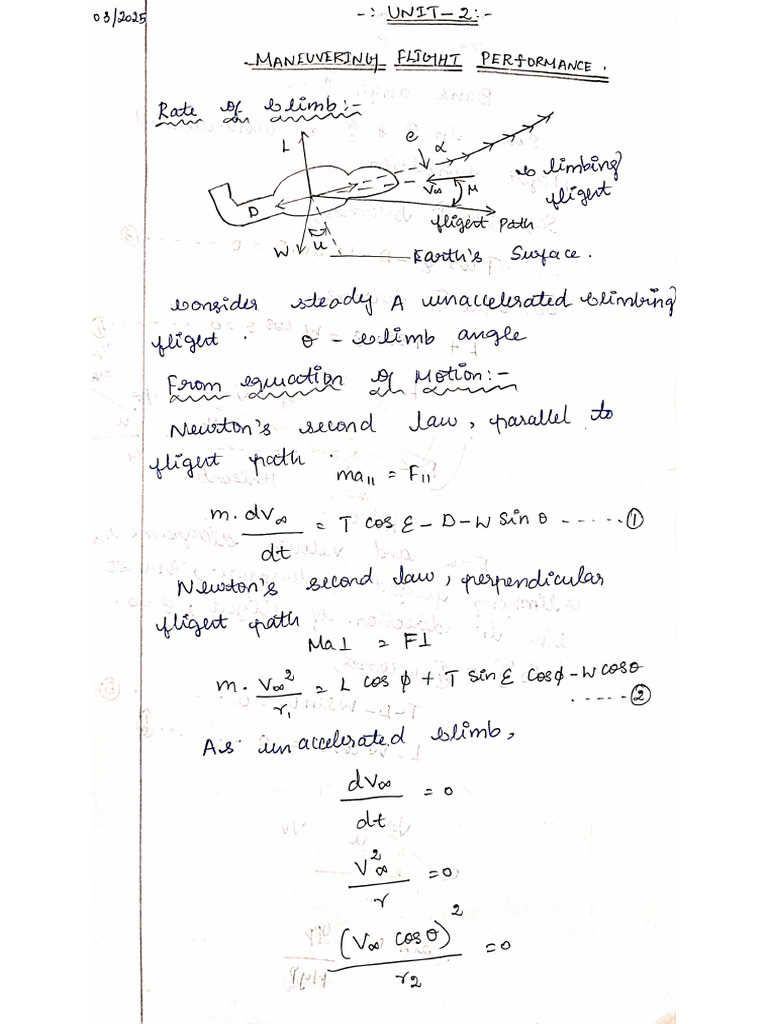 03/2025
-: UNIT-2 :-
MANEUVERING FLIGHT PERFORMANCE.
Rate of climb:-
L
e
α
climbing
flight
V∞
M
D
flight path
W
u
Earth's Surface.
Consider steady A unaccelerated climbing
flight. θ - climb angle
From equation of Motion:-
Newton's second law, parallel to
flight path.
ma₁₁ = F₁₁
m. dV∞ / dt = T cos ε - D - W sin θ ------ ①
Newton's second law, perpendicular
flight path
Ma⊥ = F⊥
m. V∞² / r₁ = L cos φ + T sin ε cosφ - W cosθ
----- ②
As unaccelerated climb,
dV∞ / dt = 0
V∞² / r = 0
(V∞ cosθ)² / r2 = 0